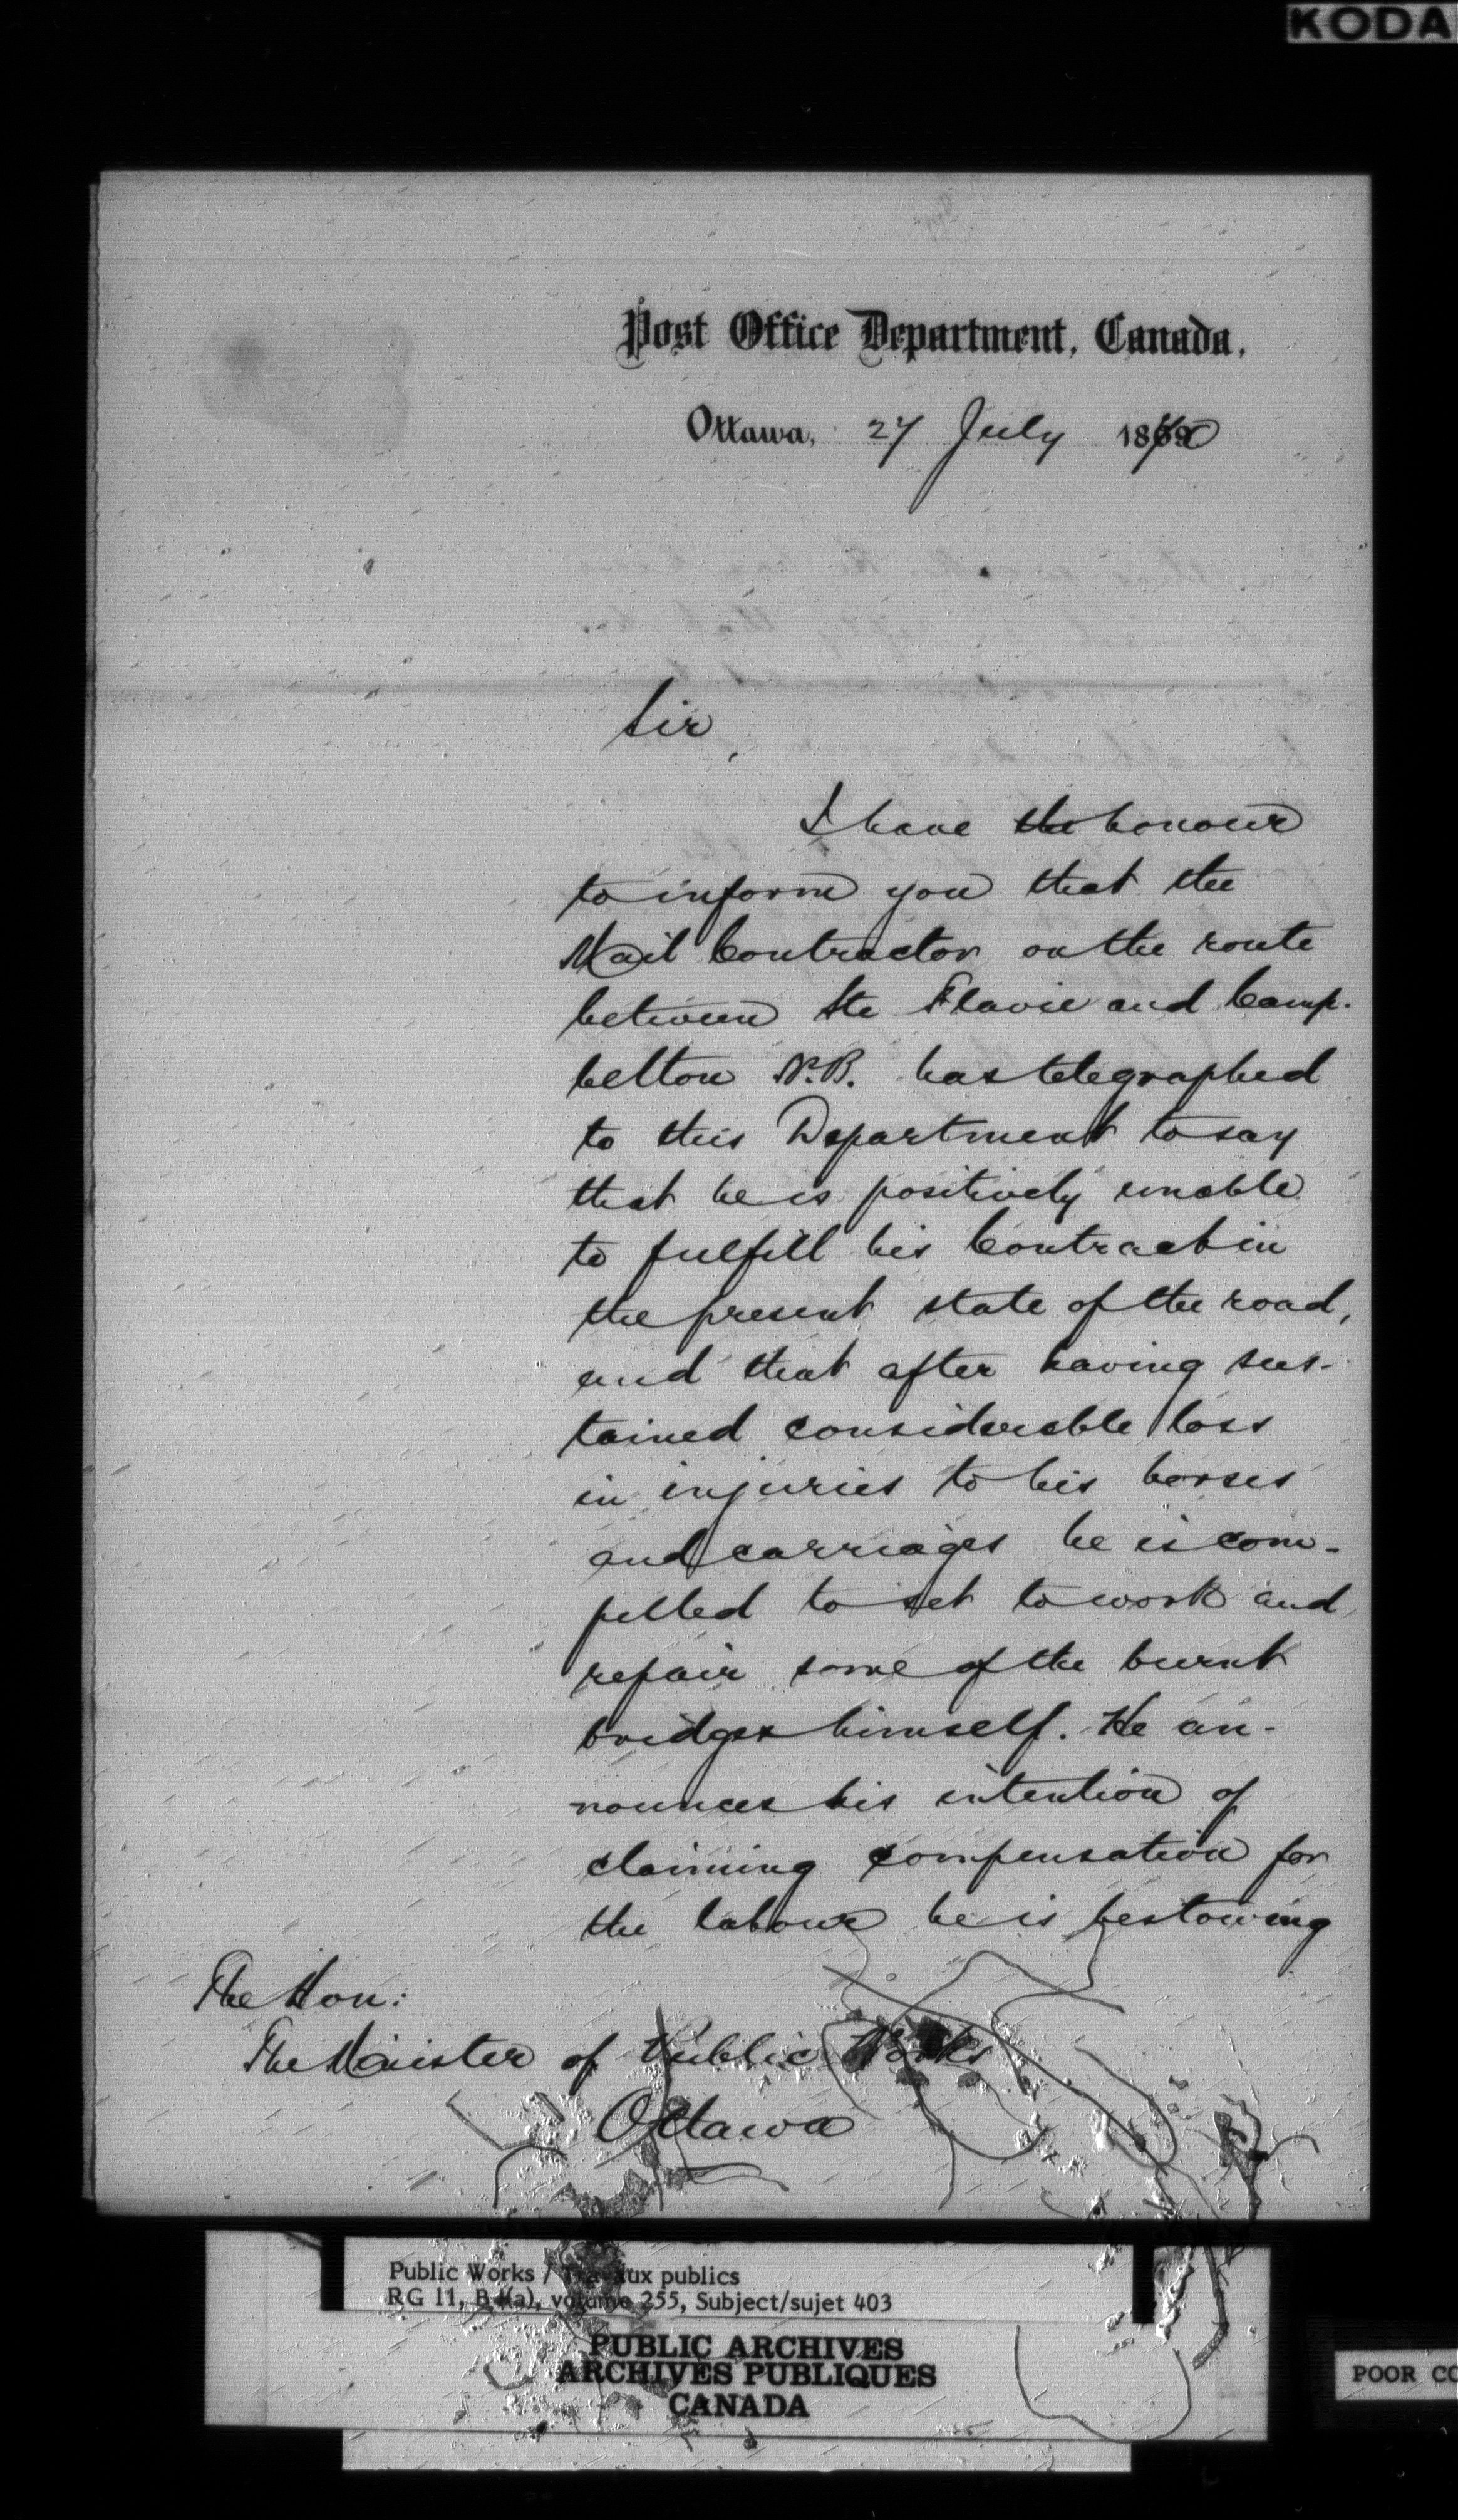 KODA
Post Office Department, Canada,
Ottawa, 27 July 1870
Sir,
I have the honour
to inform you that the
Mail Contractor on the route
between Ste Flavie and Camp-
bellton N.B. has telegraphed
to this Department to say
that he is positively unable
to fulfill his Contract in
the present state of the road,
and that after having sus-
tained considerable loss
in injuries to his horses
and carriages he is com-
pelled to set to work and
repair some of the burnt
bridges himself. He an-
nounces his intention of
claiming compensation for
the labour he is bestowing
The Hon:
The Minister of Public Works
Ottawa
Public Works / Travaux publics
RG 11, B 1(a), volume 255, Subject/sujet 403
PUBLIC ARCHIVES
ARCHIVES PUBLIQUES
CANADA
POOR CO